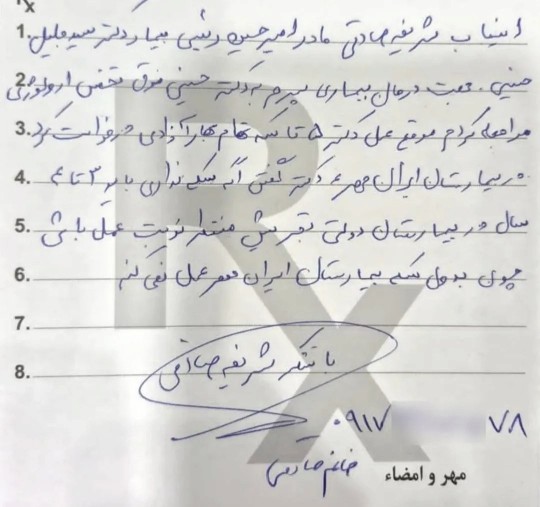 Rx
1. اینجانب شریفه صادقی مادر امیرحسین رئیسی بیمار دکتر سید جلیل
2. حسینی. جهت درمان بیماری پسرم به دکتر حسینی فوق تخصص ارولوژی
3. مراجعه کردم موقع عمل دکتر ۵ تا سکه تمام بهار آزادی درخواست کرد
4. در بیمارستان ایران مهر، دکتر گفتن اگه سکه نداری باید ۳ تا ۴
5. سال در بیمارستان دولتی تجریش منتظر نوبت عمل باشی
6. چون بدون سکه بیمارستان ایران مهر عمل نمی‌کنم
7.
8. با تشکر شریفه صادقی
۰۹۱۷ ۷۸
خانم صادقی
مهر و امضاء